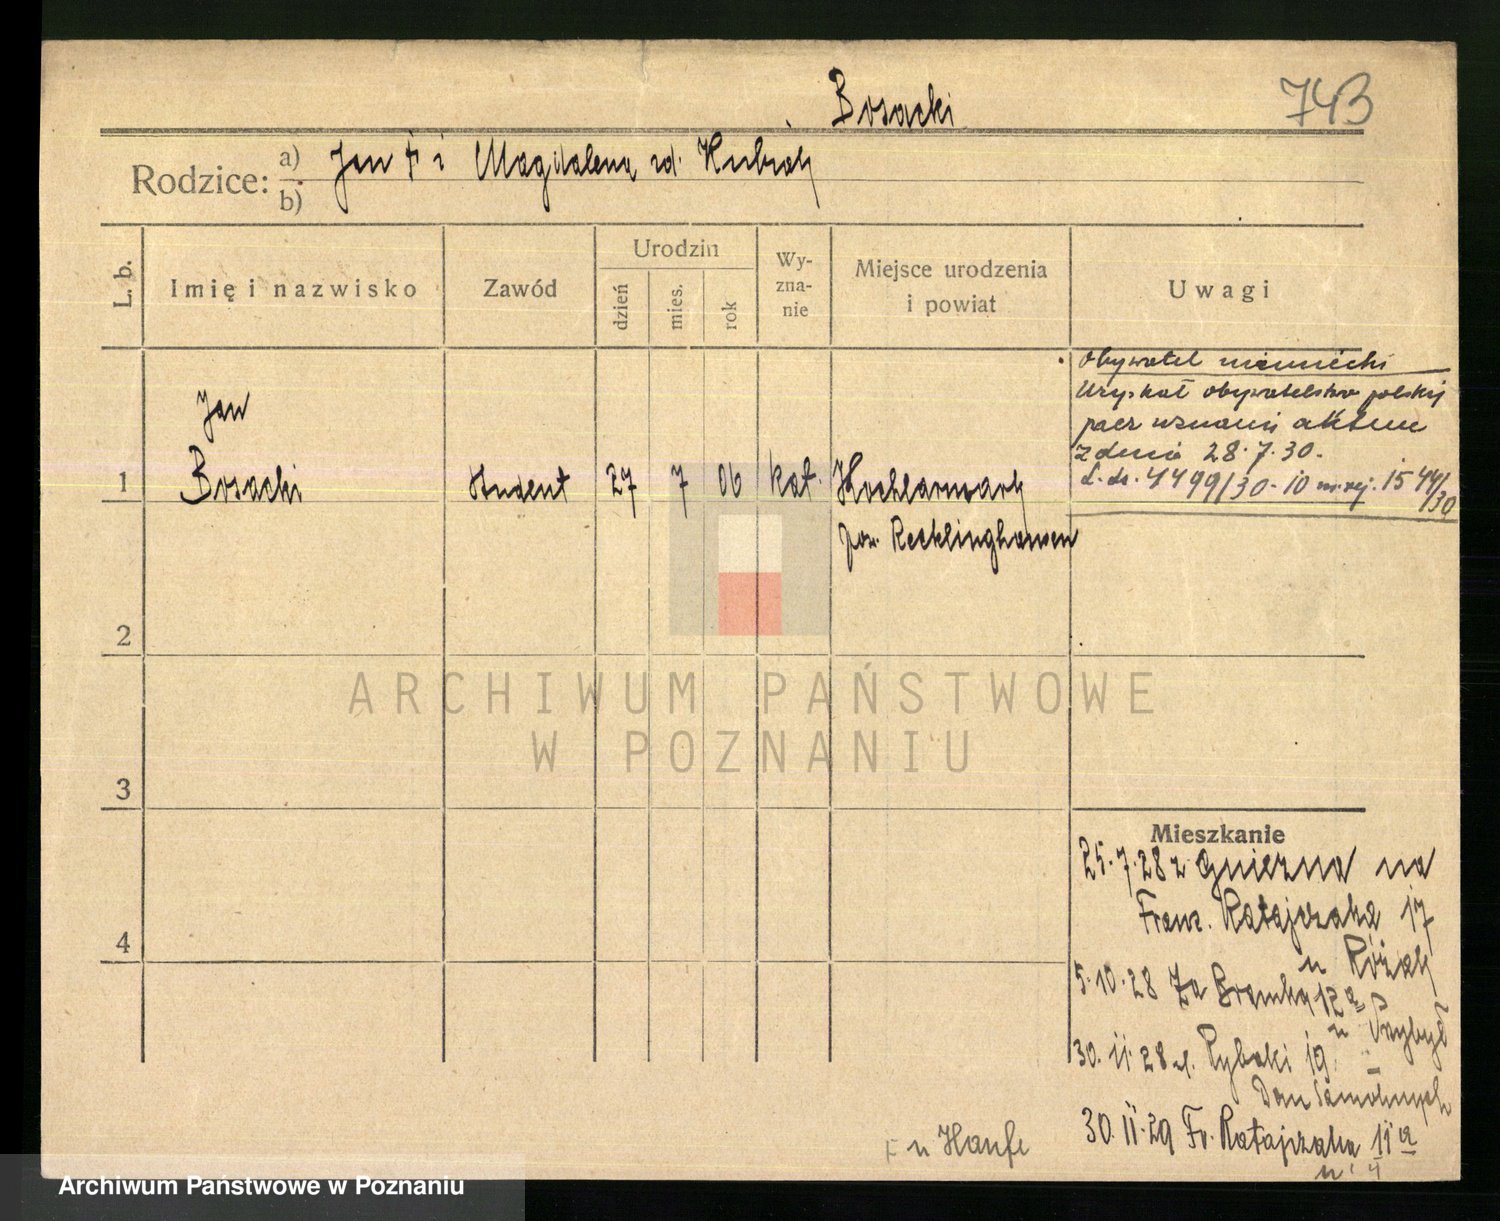 Bosacki
743
Rodzice:
a) Jan † i Magdalena zd. Kubiak
b)
L. b.
Imię i nazwisko
Zawód
Urodzin
dzień
mies.
rok
Wy-
zna-
nie
Miejsce urodzenia
i powiat
Uwagi
Obywatel niemiecki
Uzyskał obywatelstwo polskie
przez uznanie aktem
z dnia 28.7.30.
L.dz. 4499/30 - 10 nr. rej. 1544/30
Jan
1 Bosacki student 27 7 06 kat. Hochlarmark
pow. Recklinghausen
2
ARCHIWUM PAŃSTWOWE
W POZNANIU
3
4
Mieszkanie
25.7.28 z Gniezna na
Franc. Ratajczaka 17
u Różak
5.10.28 Za Bramką 12a
u Przybył
30.11.28 ul. Rybaki 19
Dom Samotnych
30.11.29 Fr. Ratajczaka 11a
u Hanke
Archiwum Państwowe w Poznaniu